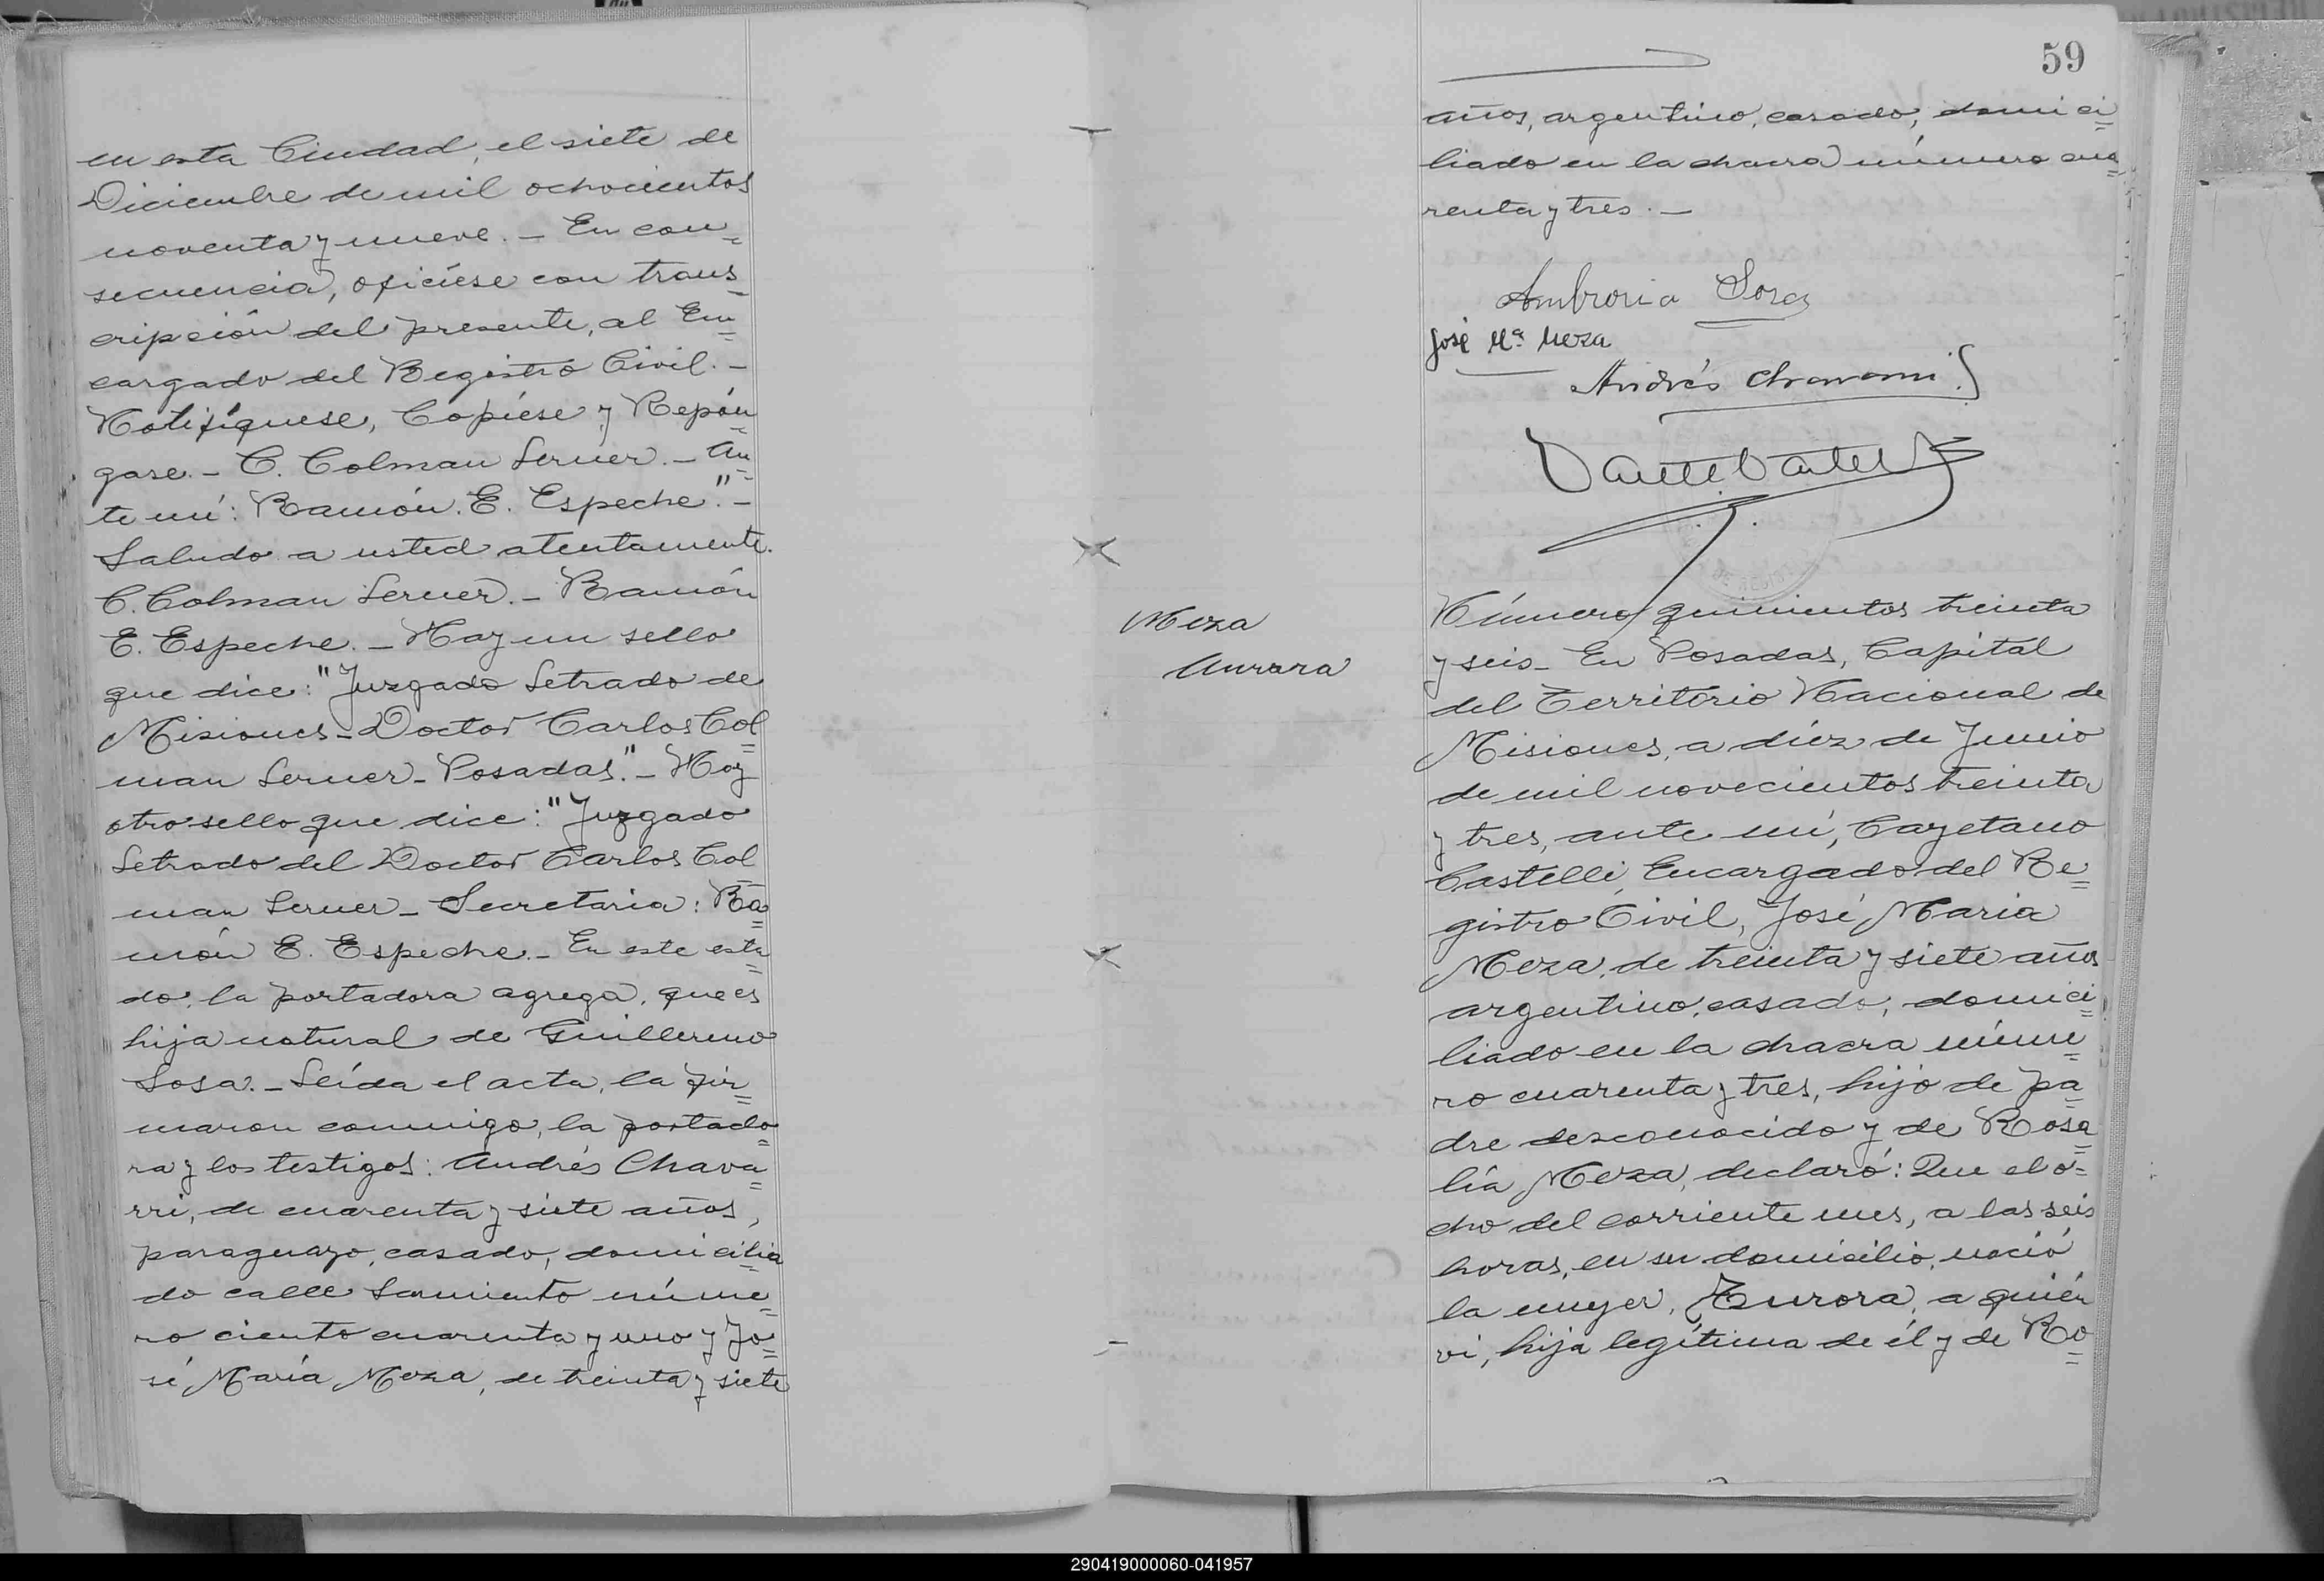 en esta Ciudad, el siete de
Diciembre de mil ochocientos
noventa y nueve. — En con=
secuencia, ofíciese con trans=
cripción del presente, al En=
cargado del Registro Civil. —
Notifíquese, Copíese y Repón=
gase. — C. Colman Lerner. — An=
te mí: Ramón. E. Espeche". —
Saludo a usted atentamente.
C. Colman Lerner. — Ramón
E. Espeche. — Hay un sello
que dice: "Juzgado Letrado de
Misiones — Doctor Carlos Col=
man Lerner — Posadas". — Hay
otro sello que dice: "Juzgado
Letrado del Doctor Carlos Col=
man Lerner — Secretaria: Ra=
món E. Espeche. — En este esta=
do, la portadora agrega, que es
hija natural de Guillermo
Sosa. — Leída el acta, la fir=
maron conmigo, la portado=
ra y los testigos: Andrés Chava=
rri, de cuarenta y siete años,
paraguayo, casado, domicilia=
do calle Sarmiento núme=
ro ciento cuarenta y uno y Jo=
sé María Meza, de treinta y siete
59
años, argentino, casado, domici=
liado en la chacra número cua=
renta y tres. —
Ambrosia Sosa
José Mª Meza
Andrés Chavarri
Meza
Aurora
Número quinientos treinta
y seis — En Posadas, Capital
del Territorio Nacional de
Misiones, a diéz de Junio
de mil novecientos treinta
y tres, ante mí, Cayetano
Castelli, Encargado del Re=
gistro Civil, José Maria
Meza, de treinta y siete años
argentino, casado, domici=
liado en la chacra núme=
ro cuarenta y tres, hijo de pa=
dre desconocido y de Rosa=
lía Meza, declaró: Que el o=
cho del corriente mes, a las seis
horas, en su domicilio, nació
la mujer, Aurora, a quién
ví, hija legítima de él y de Ro=
290419000060-041957